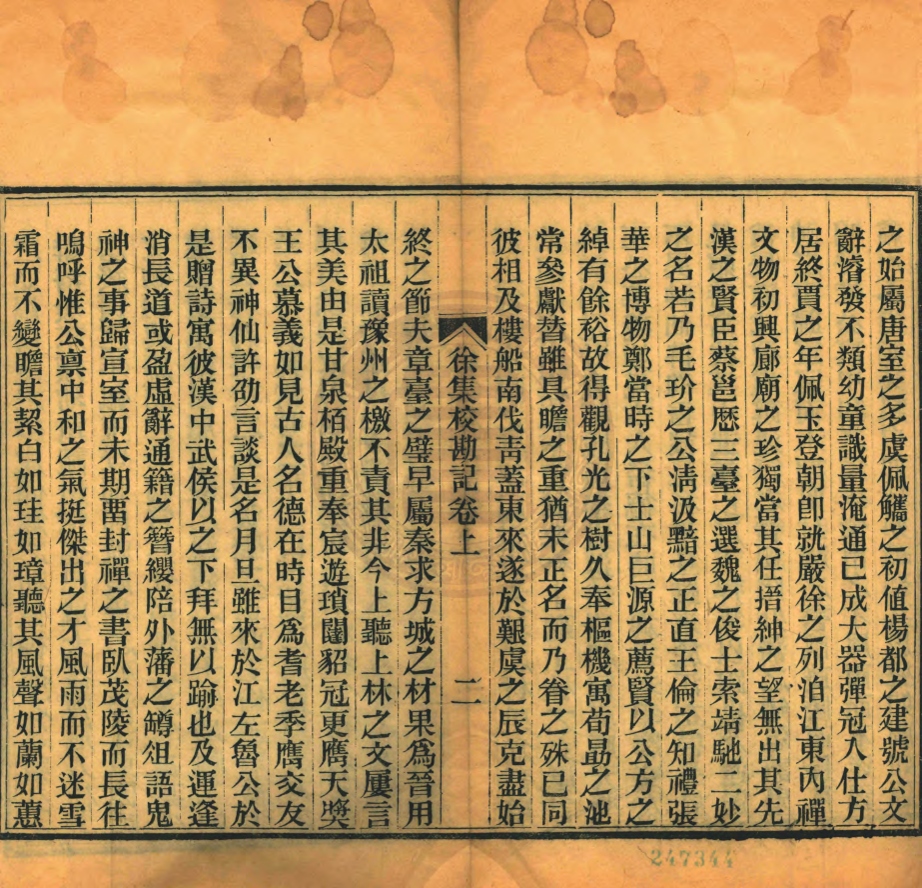 之始屬唐室之多虞佩觿之初値楊都之建號公文
辭濬發不類幼童識量淹通已成大器彈冠入仕方
居終賈之年佩玉登朝卽就嚴徐之列洎江東內禪
文物初興廊廟之珍獨當其任搢紳之望無出其先
漢之賢臣蔡邕歷三臺之選魏之俊士索靖馳二妙
之名若乃毛玠之公淸汲黯之正直王倫之知禮張
華之博物鄭當時之下士山巨源之薦賢以公方之
綽有餘裕故得觀孔光之樹久奉樞機寓荀勗之池
常參獻替雖具瞻之重猶未正名而乃眷之殊已同
彼相及樓船南伐靑蓋東來遂於艱虞之辰克盡始
徐集校勘記卷上
二
終之節夫章臺之璧早屬秦求方城之材果爲晉用
太祖讀豫州之檄不責其非今上聽上林之文屢言
其美由是甘泉栢殿重奉宸遊瑣闥貂冠更膺天奬
王公慕義如見古人名德在時目爲耆老季膺交友
不異神仙許劭言談是名月旦雖來於江左魯公於
是贈詩寓彼漢中武侯以之下拜無以踰也及運逢
消長道或盈虛辭通籍之簪纓陪外藩之罇俎語鬼
神之事歸宣室而未期畱封禪之書臥茂陵而長往
嗚呼惟公禀中和之氣挺傑出之才風雨而不迷雪
霜而不變瞻其絜白如珪如璋聽其風聲如蘭如蕙
247344